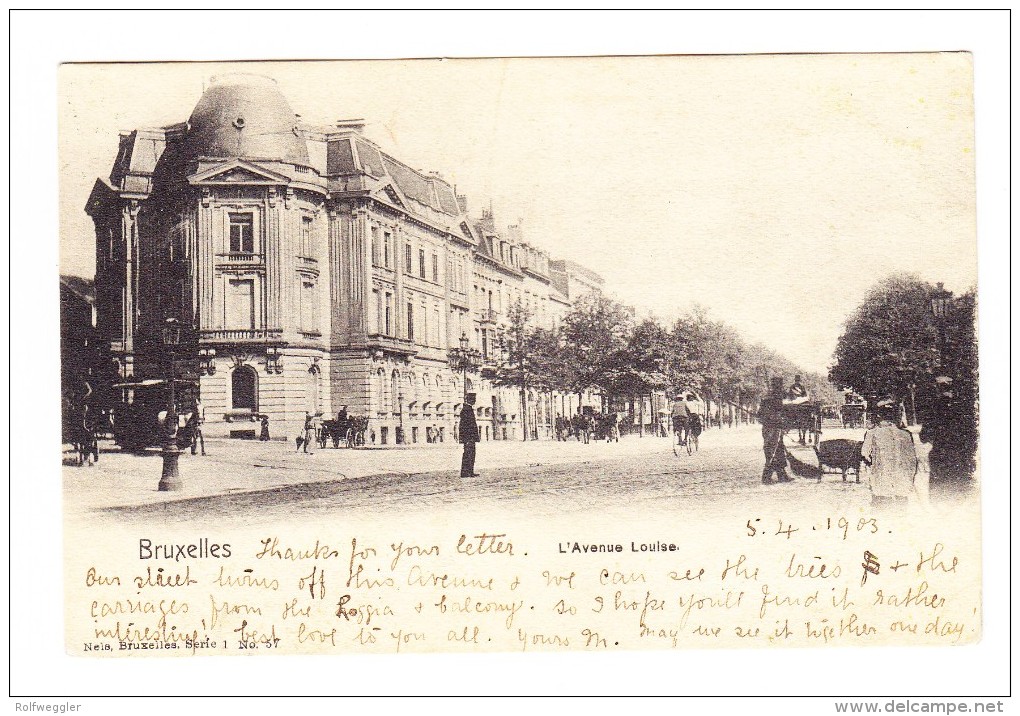 5.4.1903
Bruxelles Thanks for your letter. L'Avenue Louise.
Our street turns off this Avenue & we can see the trees & the
carriages from the loggia & balcony. So I hope you'll find it rather
interesting! best love to you all. Yours M. May we see it together one day.
Nels, Bruxelles, Serie 1 No. 57
Rolfweggler
www.delcampe.net